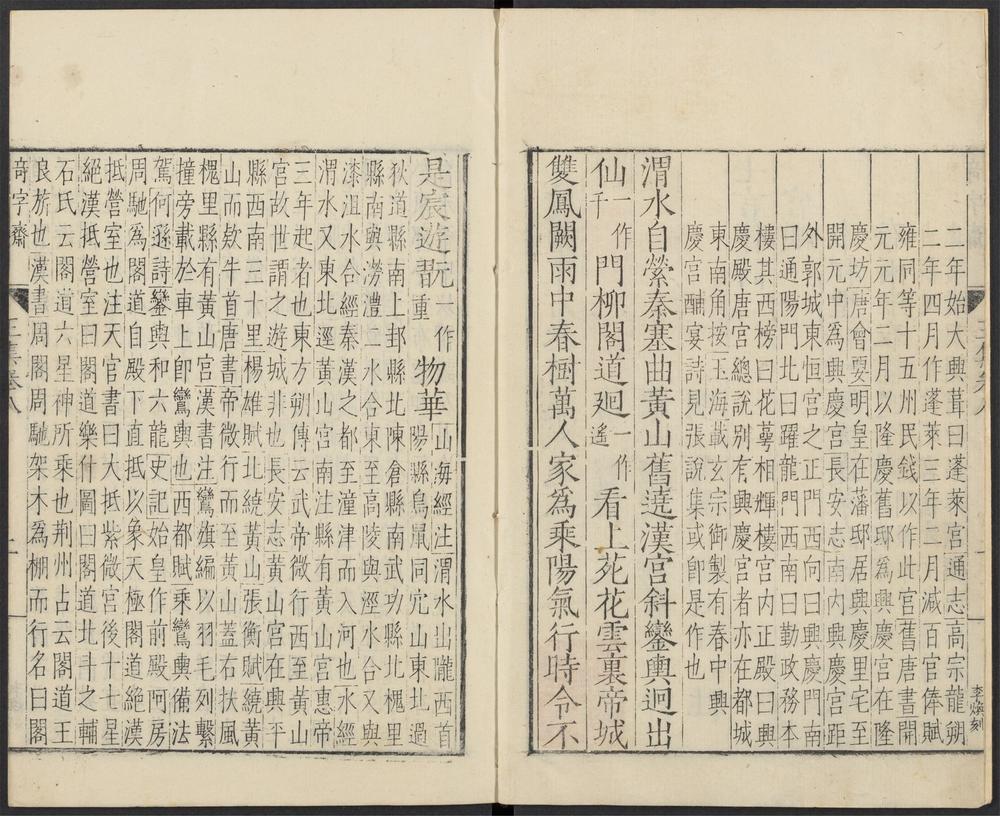 二年始大興葺曰蓬萊宮通志高宗龍朔
二年四月作蓬萊三年二月減百官俸賦
雍同等十五州民錢以作此宮舊唐書開
元元年二月以隆慶舊邸為興慶宮在隆
慶坊唐會要明皇在藩邸居興慶里宅至
開元中為興慶宮長安志南內興慶宮距
外郭城東恒宮之正門西向曰興慶門南
曰通陽門北曰躍龍門西南曰勤政務本
樓其西榜曰花萼相輝樓宮內正殿曰興
慶殿唐宮總說別有興慶宮者亦在都城
東南角按玉海載玄宗御製有春中興
慶宮酺宴詩見張說集或即是作也
渭水自縈秦塞曲黃山舊遶漢宮斜鑾輿迥出
仙一作千門柳閣道廻一作遙看上苑花雲裏帝城
雙鳳闕雨中春樹萬人家為乘陽氣行時令不
李煥刻
是宸遊翫一作重物華山海經注渭水出隴西首
陽縣鳥鼠同穴山東北過
狄道縣南上邽縣北陳倉縣南武功縣北槐里
縣南與澇澧二水合東至高陵與涇水合又與
漆沮水合經秦漢之都至潼津而入河也水經
渭水又東北逕黃山宮南注縣有黃山宮惠帝
三年起者也東方朔傳云武帝微行西至黃山
宮故世謂之遊城非也長安志黃山宮在興平
縣西南三十里楊雄賦北繞黃山張衡賦繞黃
山而欵牛首唐書帝微行而至黃山蓋右扶風
槐里縣有黃山宮漢書注鸞旗編以羽毛列繫
撞旁載於車上卽鸞輿也西都賦乘鸞輿備法
駕何遜詩鑾輿和六龍史記始皇作前殿阿房
周馳為閣道自殿下直抵以象天極閣道絶漢
抵營室也注天官書曰大抵紫微宮後十七星
絕漢抵營室曰閣道樂什圖曰閣道北斗之輔
石氏云閣道六星神所乘也荆州占云閣道王
良旅也漢書周閣周馳架木為棚而行名曰閣
奇字齋